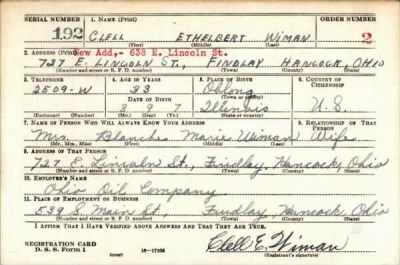 SERIAL NUMBER 1. NAME (Print) ORDER NUMBER
192 CLELL ETHELBERT WIMAN 2
(First) (Middle) (Last)
2. ADDRESS (Print) New Add,- 636 E. Lincoln St.
727 E. LINCOLN ST., FINDLAY HANCOCK, OHIO
(Number and street or R. F. D. number) (Town) (County) (State)
3. TELEPHONE 4. AGE IN YEARS 5. PLACE OF BIRTH 6. COUNTRY OF CITIZENSHIP
2509-W 33 Oblong
DATE OF BIRTH (Town or county)
3 7 Illinois U.S.
(Exchange) (Number) (Mo.) (Day) (Yr.) (State or country)
7. NAME OF PERSON WHO WILL ALWAYS KNOW YOUR ADDRESS 8. RELATIONSHIP OF THAT PERSON
Mrs. Blanche Marie Wiman Wife
(Mr., Mrs., Miss) (First) (Middle) (Last)
9. ADDRESS OF THAT PERSON
727 E. Lincoln St., Findlay, Hancock, Ohio
(Number and street or R. F. D. number) (Town) (County) (State)
10. EMPLOYER'S NAME
Ohio Oil Company
11. PLACE OF EMPLOYMENT OR BUSINESS
539 S. Main St., Findlay, Hancock, Ohio
(Number and street or R. F. D. number) (Town) (County) (State)
I AFFIRM THAT I HAVE VERIFIED ABOVE ANSWERS AND THAT THEY ARE TRUE.
REGISTRATION CARD
D. S. S. Form 1 (over) 16—17105
Clell E. Wiman
(Registrant's signature)